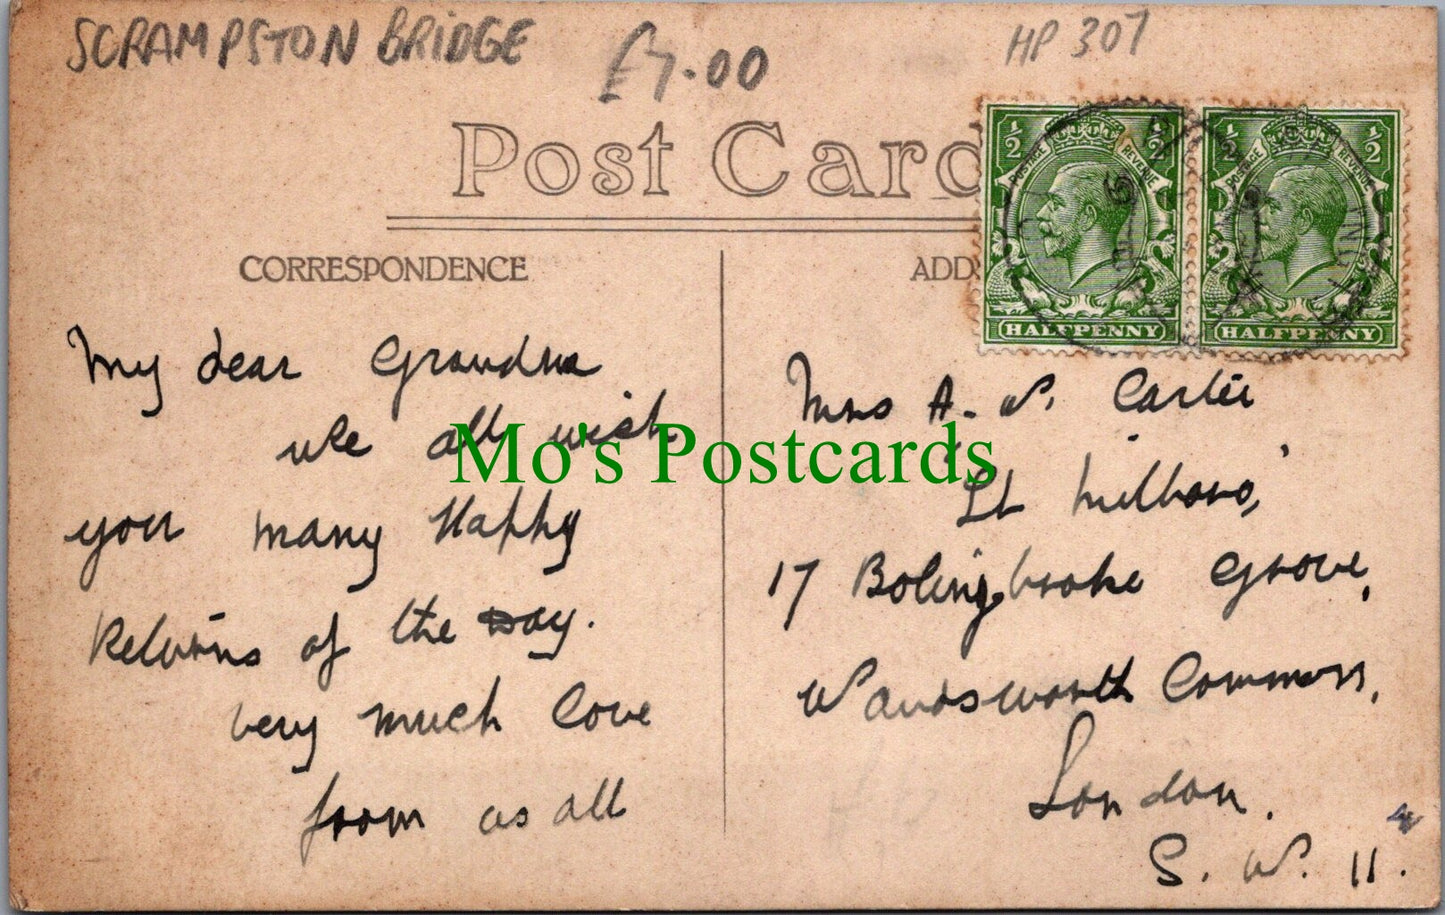 SCRAMPSTON BRIDGE £7.00 HP 307
Post Card
CORRESPONDENCE
ADD
½ ½ ½ ½
POSTAGE REVENUE POSTAGE REVENUE
HALFPENNY HALFPENNY
My dear Grandma
we all wish
you many Happy
Returns of the Day.
very much love
from us all
Mrs A. W. Carter
17 Bolingbroke Grove,
Wandsworth Common,
London.
S. W. 11.
Mo's Postcards